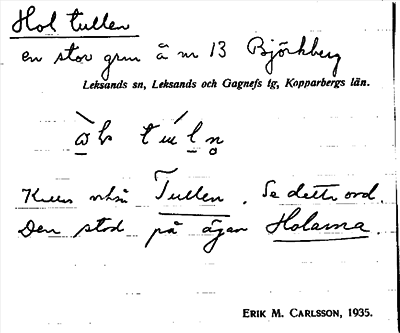 Hol tullen
en stor gran å nr 13 Björkberg
Leksands sn, Leksands och Gagnefs tg, Kopparbergs län.
Tullen. Se detta ord.
Den stod på ägan Holarna.
ERIK M. CARLSSON, 1935.